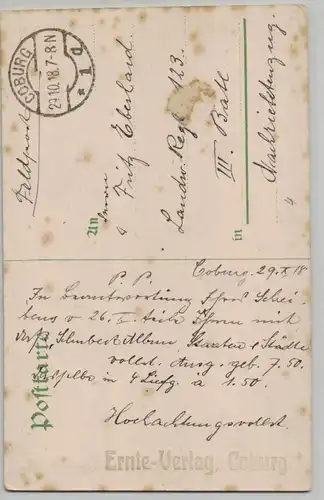 COBURG
29.10.18.7-8N
* 1 d
Feldpost
An
Herrn
Fritz Eberlach
Landw. Regt 123.
III. Batl
in
Nachrichtenzug.
4
Postkarte
Coburg 29.X.18
P. P.
In Beantwortung Ihres Schrei-
bens v 26. teile Ihnen mit
daß Album, Staaten & Städte
vollst. Ausg. geb. 7.50.
dasselbe in 4 Liefg. a 1.50.
Hochachtungsvollst.
Ernte-Verlag, Coburg